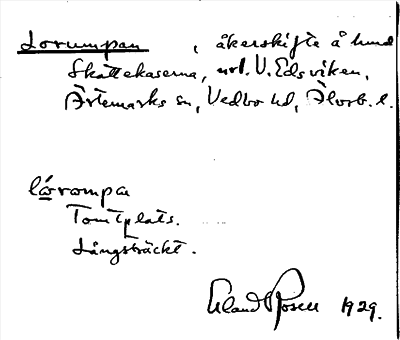 Lorumpan, åkerskifte å hmd
Skattekaserna, utl. V. Edsviken,
Ärtemarks sn, Vedbo hd, Älvsb. l.
lórompa
Tomtplats.
Långsträckt.
Erland Rosell 1929.